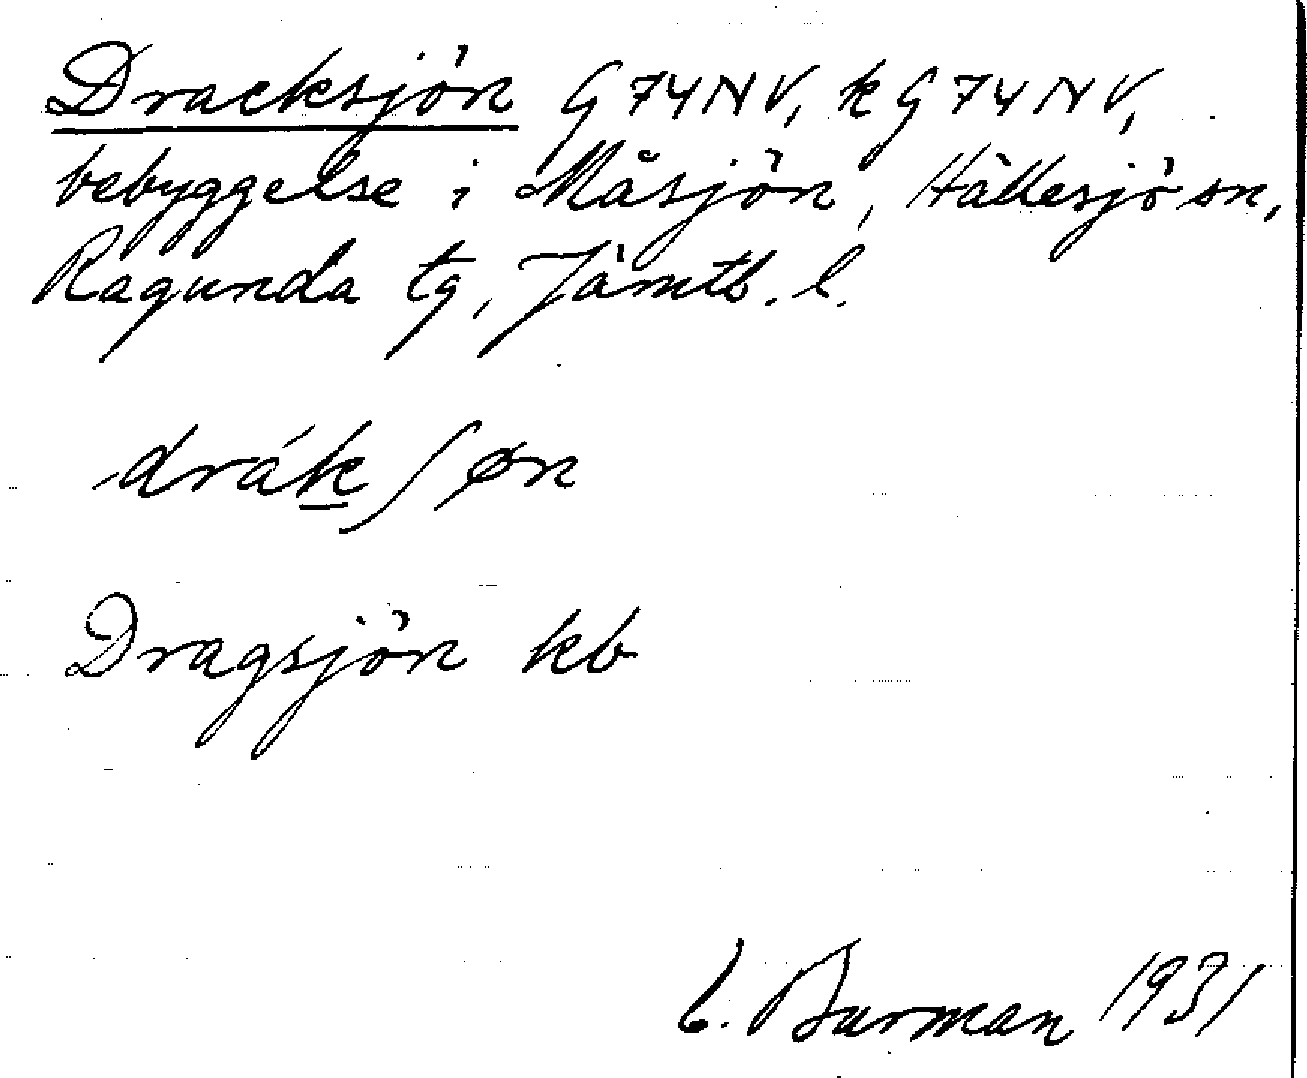 Dracksjön G74NV, kG74NV,
bebyggelse i Måsjön, Hällesjö sn,
Ragunda tg, Jämtl. l.
drák̲ʃøn
Dragsjön kb
L. Burman 1931